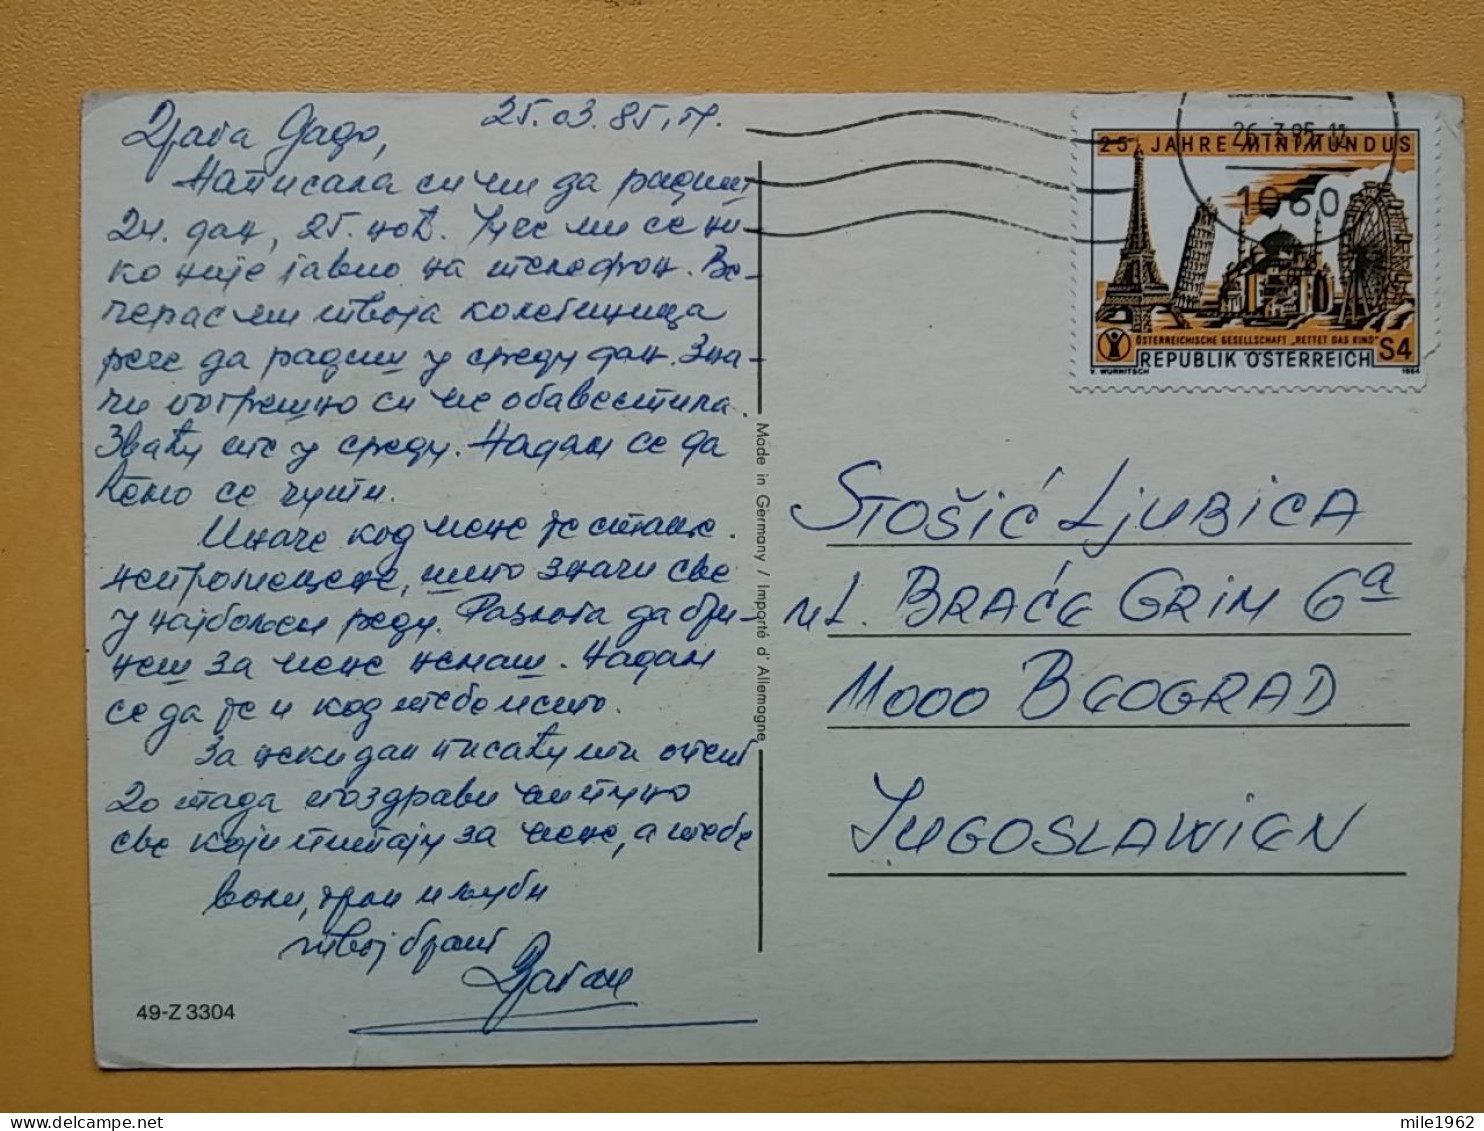 25.03.85. г.
Драга Дадо,
Написала си ми да радиш
24. дан, 25. ноћ. Јуче ми се ни-
ко није јавио на телефон. Ве-
черас ми твоја колегиница
рече да радиш у среду дан. Зна-
чи погрешно си ме обавестила.
Зваћу те у среду. Надам се да
ћемо се чути.
Иначе код мене је стање
непромењено, што значи све
у најбољем реду. Разлога да бри-
неш за мене немаш. Надам
се да је и код тебе исто.
За неки дан писаћу ти опет
До тада поздрави
све који питају за мене, а тебе
воли, грли и љуби
твој брат
Драган
49-Z 3304
Made in Germany / Importé d'Allemagne
26. 3.85-11
1060
25 JAHRE MINIMUNDUS
ÖSTERREICHISCHE GESELLSCHAFT „RETTET DAS KIND"
REPUBLIK ÖSTERREICH S4
V. WURNITSCH 1984
STOŠIĆ LJUBICA
ul. BRAĆE GRIM 6a
11000 BEOGRAD
JUGOSLAWIEN
mile1962